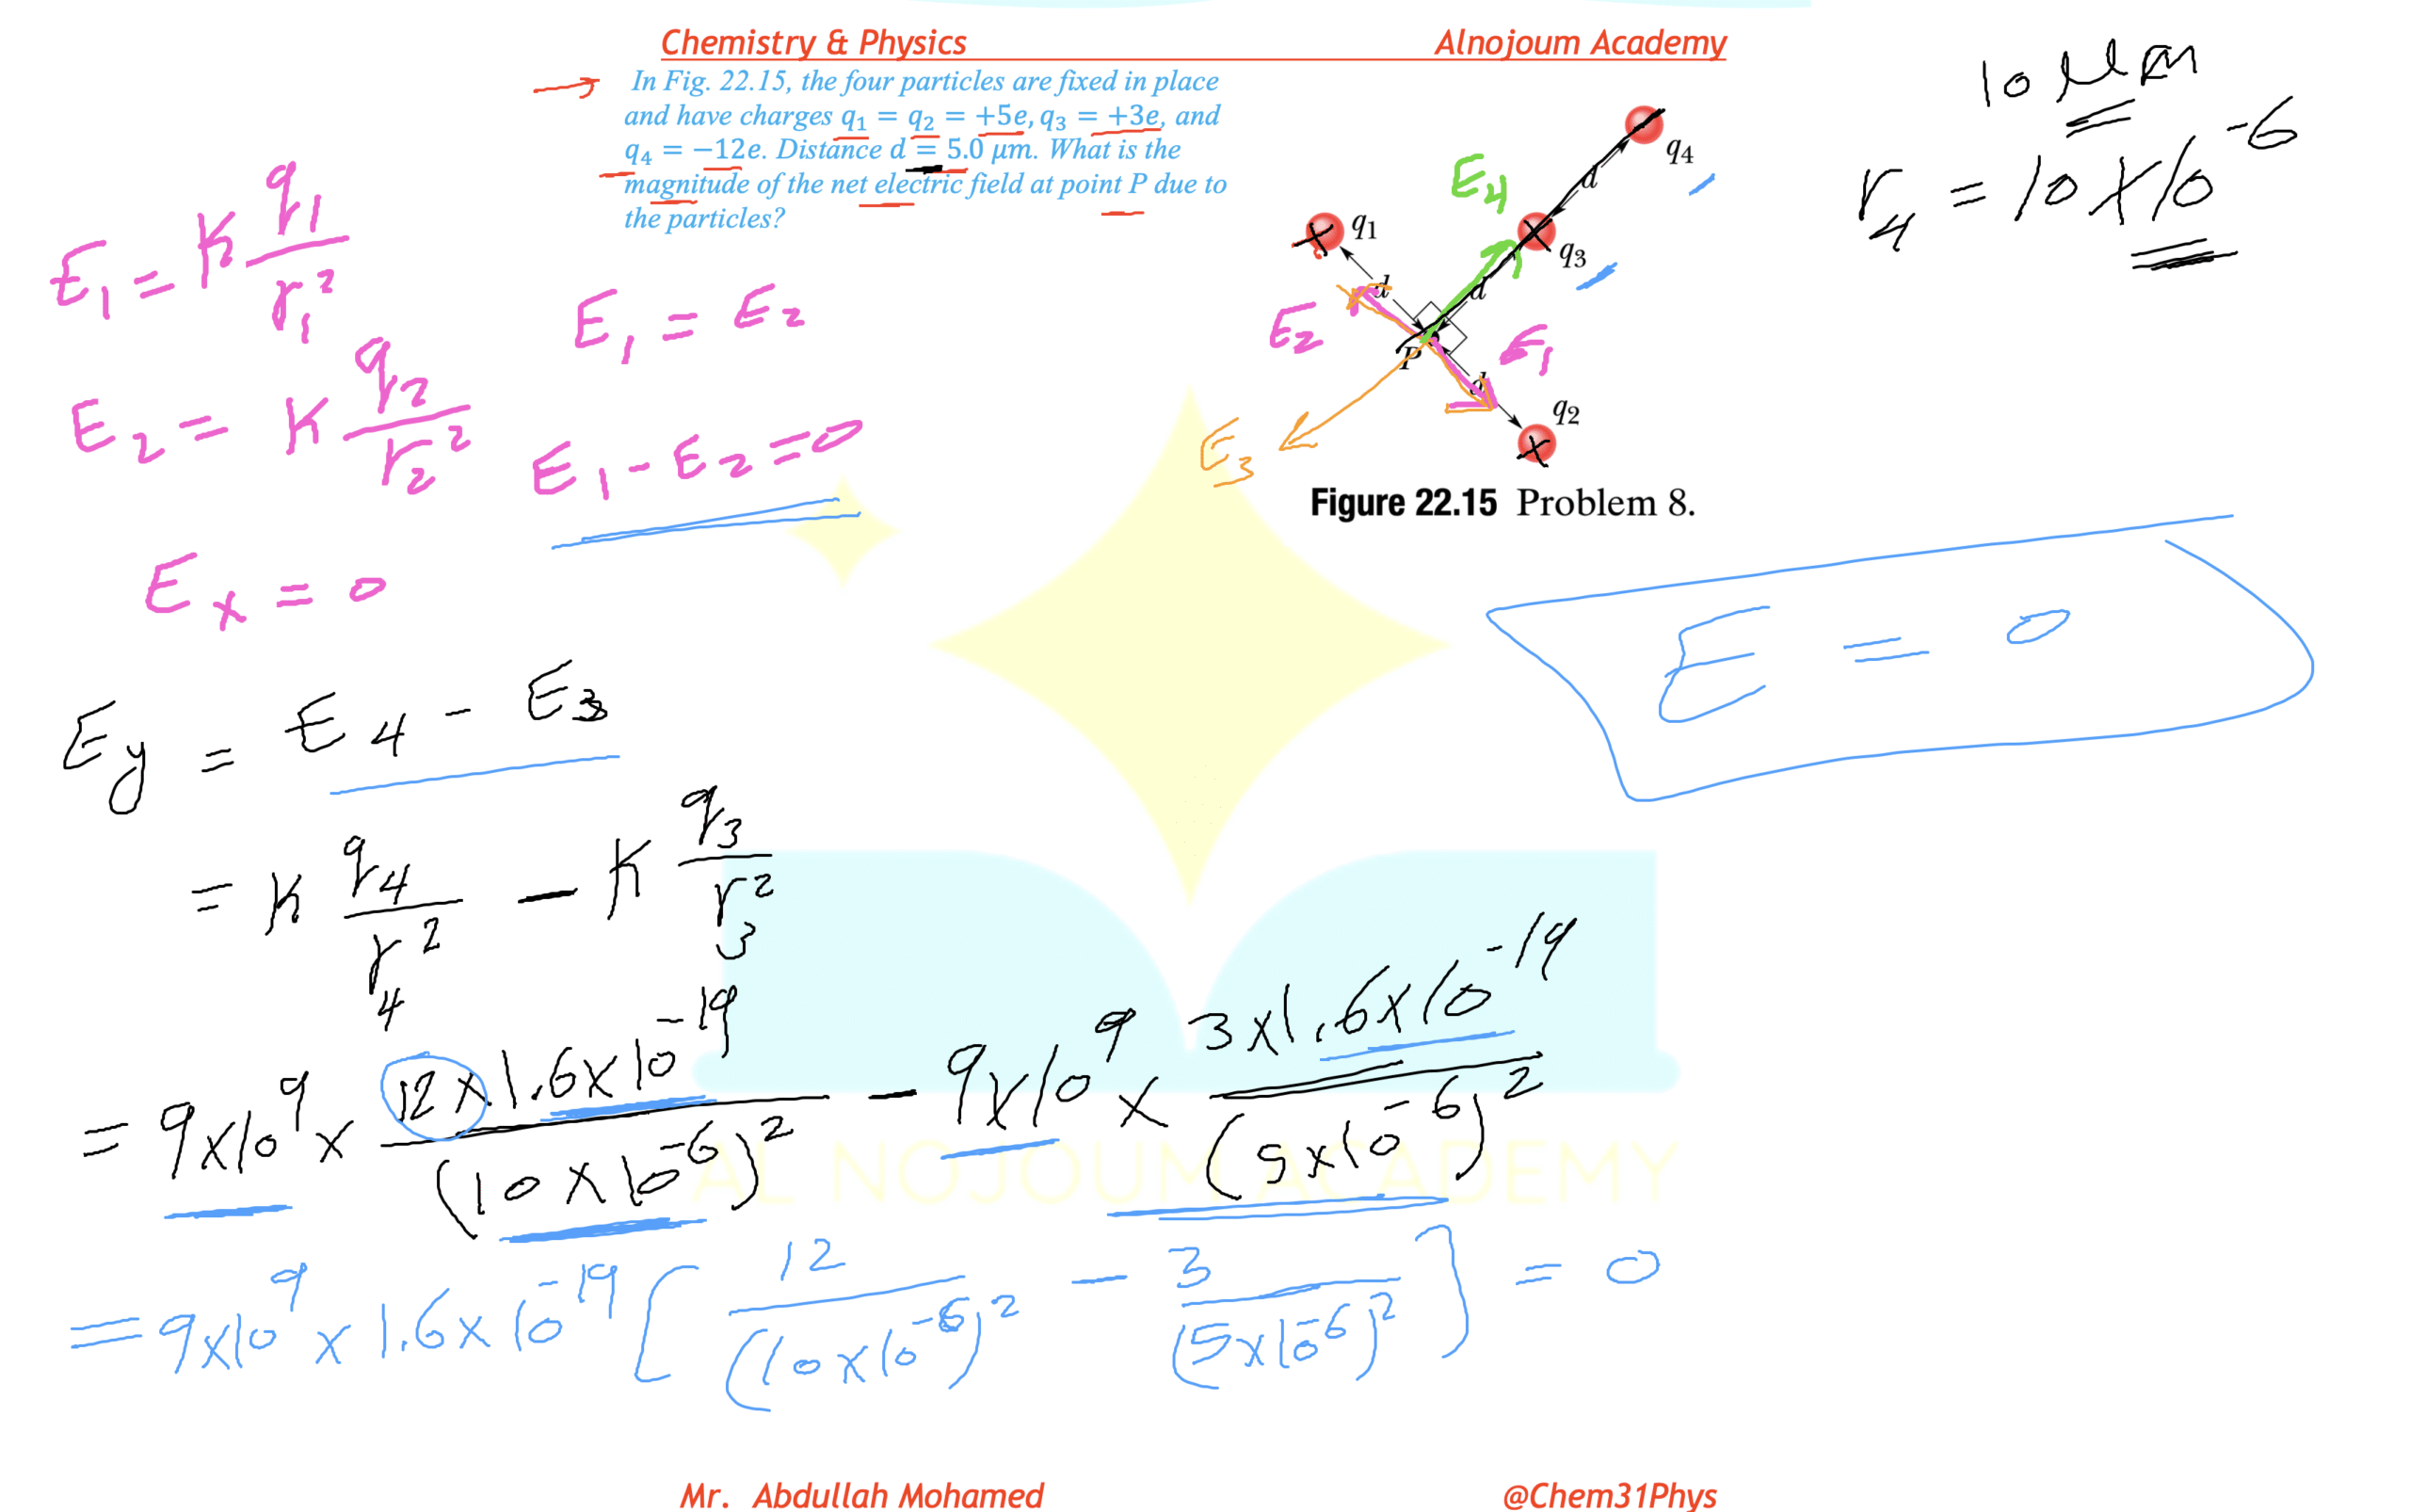 Chemistry & Physics
Alnojoum Academy
In Fig. 22.15, the four particles are fixed in place
and have charges q₁ = q₂ = +5e, q₃ = +3e, and
q₄ = −12e. Distance d = 5.0 μm. What is the
magnitude of the net electric field at point P due to
the particles?
10 μm
r₄ = 10 × 10⁻⁶
q₄
d
E₄
q₁
q₃
d
d
E₂
E₁
P
d
q₂
E₃
Figure 22.15 Problem 8.
E₁ = K q₁/r₁²
E₁ = E₂
E₂ = K q₂/r₂²
E₁ - E₂ = 0
Eₓ = 0
E = 0
E_y = E₄ - E₃
= K q₄/r₄² - K q₃/r₃²
= 9×10⁹ × 12×1.6×10⁻¹⁹/(10×10⁻⁶)² - 9×10⁹ × 3×1.6×10⁻¹⁹/(5×10⁻⁶)²
= 9×10⁹ × 1.6×10⁻¹⁹ [12/(10×10⁻⁶)² - 3/(5×10⁻⁶)²] = 0
AL NOJOUM ACADEMY
Mr. Abdullah Mohamed
@Chem31Phys